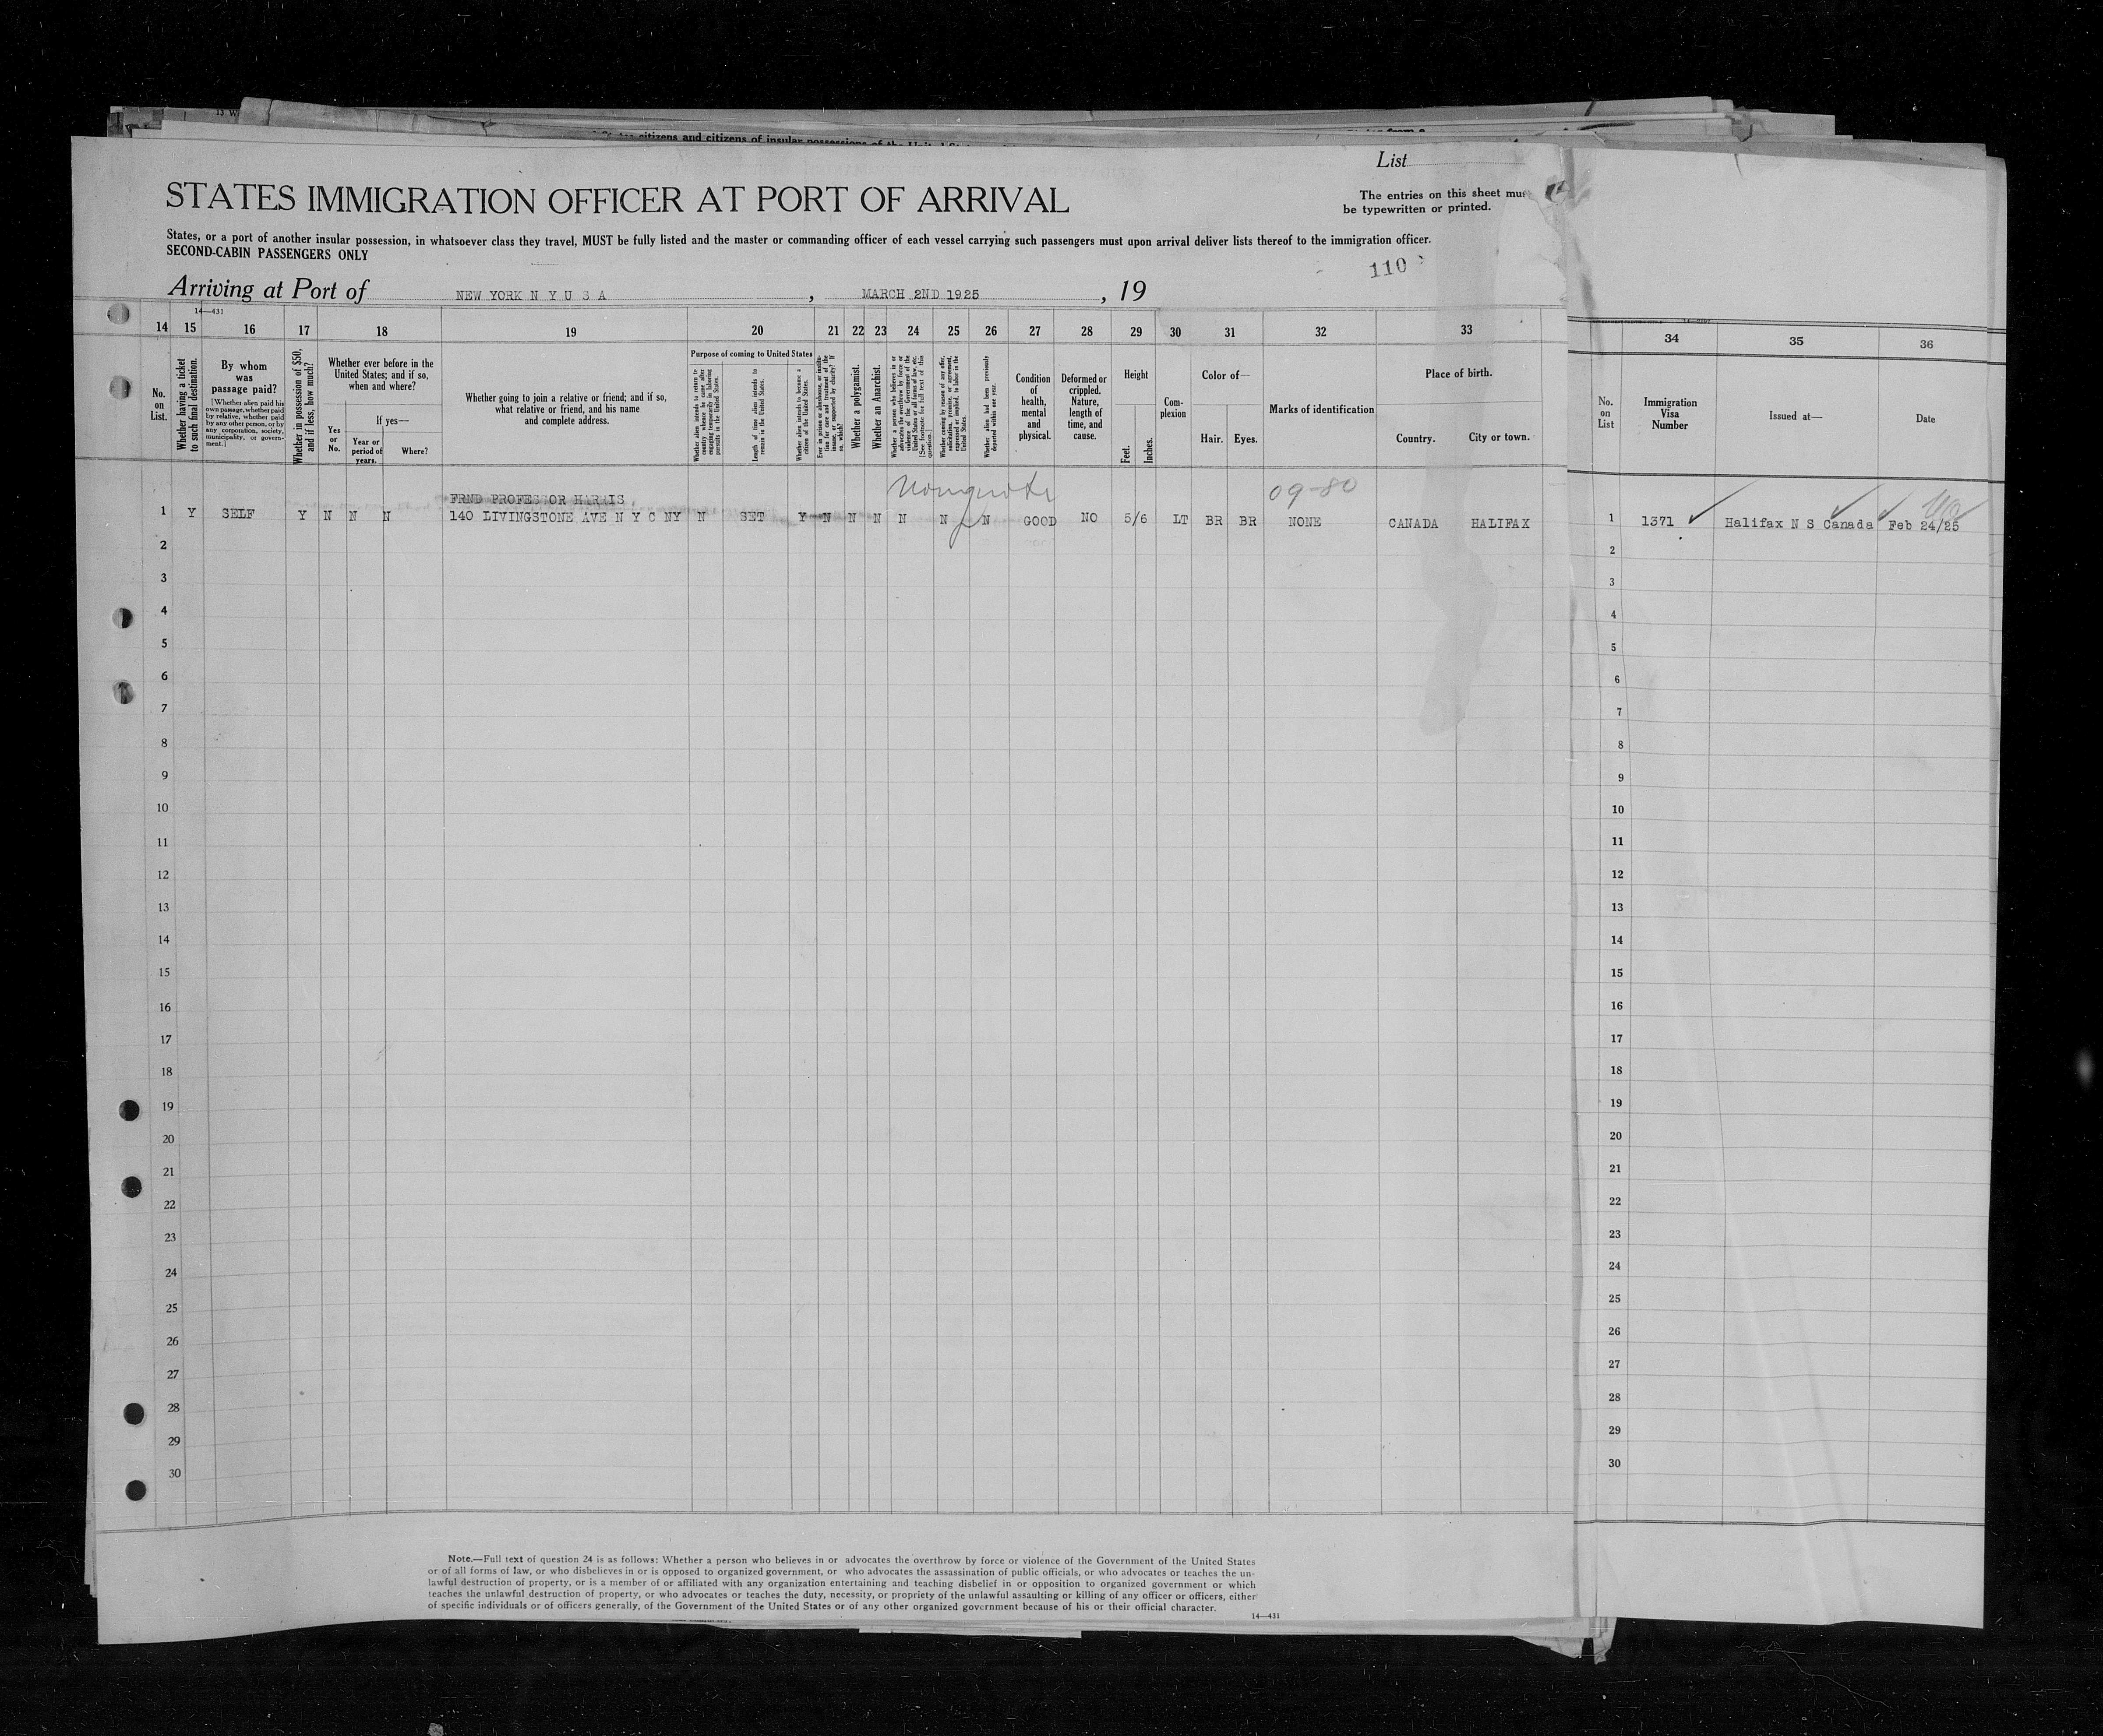 13 W
States citizens and citizens of insular possessions of the United
List
STATES IMMIGRATION OFFICER AT PORT OF ARRIVAL
The entries on this sheet must
be typewritten or printed.
States, or a port of another insular possession, in whatsoever class they travel, MUST be fully listed and the master or commanding officer of each vessel carrying such passengers must upon arrival deliver lists thereof to the immigration officer.
SECOND-CABIN PASSENGERS ONLY
110
Arriving at Port of NEW YORK N Y U S A , MARCH 2ND 1925 , 19
14—431
14 15 16 17 18 19 20 21 22 23 24 25 26 27 28 29 30 31 32 33 34 35 36
No. on List.
Whether having a ticket to such final destination.
By whom was passage paid?
[Whether alien paid his own passage, whether paid by relative, whether paid by any other person, or by any corporation, society, municipality, or government.]
Whether in possession of $50, and if less, how much?
Whether ever before in the United States; and if so, when and where?
Yes or No.
If yes—
Year or period of years.
Where?
Whether going to join a relative or friend; and if so, what relative or friend, and his name and complete address.
Purpose of coming to United States
Whether alien intends to return to country whence he came after engaging temporarily in laboring pursuits in the United States.
Length of time alien intends to remain in the United States.
Whether alien intends to become a citizen of the United States.
Ever in prison or almshouse, or institution for care and treatment of the insane, or supported by charity? If so, which?
Whether a polygamist.
Whether an Anarchist.
Whether a person who believes in or advocates the overthrow by force or violence of the Government of the United States or all forms of law, etc. [See footnote for full text of this question.]
Whether coming by reason of any offer, solicitation, promise, or agreement, expressed or implied, to labor in the United States.
Whether alien had been previously deported within one year.
Condition of health, mental and physical.
Deformed or crippled. Nature, length of time, and cause.
Height
Feet. Inches.
Complexion
Color of—
Hair. Eyes.
Marks of identification
Place of birth.
Country. City or town.
No. on List
Immigration Visa Number
Issued at—
Date
Nonquota
09-80
FRND PROFESSOR HARRIS
1 Y SELF Y N N N 140 LIVINGSTONE AVE N Y C NY N SET Y N N N N N N GOOD NO 5/6 LT BR BR NONE CANADA HALIFAX 1 1371 Halifax N S Canada Feb 24/25
2 2
3 3
4 4
5 5
6 6
7 7
8 8
9 9
10 10
11 11
12 12
13 13
14 14
15 15
16 16
17 17
18 18
19 19
20 20
21 21
22 22
23 23
24 24
25 25
26 26
27 27
28 28
29 29
30 30
Note.—Full text of question 24 is as follows: Whether a person who believes in or advocates the overthrow by force or violence of the Government of the United States
or of all forms of law, or who disbelieves in or is opposed to organized government, or who advocates the assassination of public officials, or who advocates or teaches the un-
lawful destruction of property, or is a member of or affiliated with any organization entertaining and teaching disbelief in or opposition to organized government or which
teaches the unlawful destruction of property, or who advocates or teaches the duty, necessity, or propriety of the unlawful assaulting or killing of any officer or officers, either
of specific individuals or of officers generally, of the Government of the United States or of any other organized government because of his or their official character.
14—431